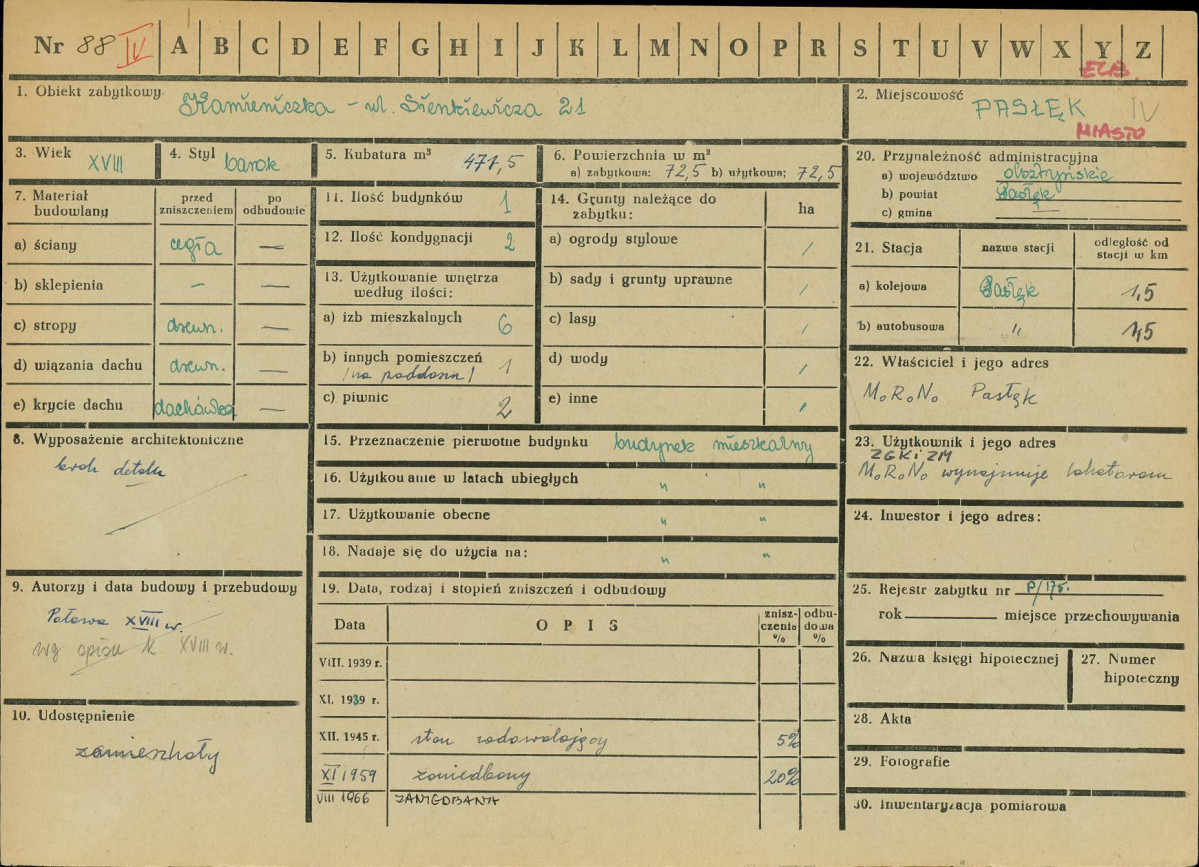 Nr 88 IV A B C D E F G H I J K L M N O P R S T U V W X Y Z
ELB.
1. Obiekt zabytkowy Kamieniczka - ul. Sienkiewicza 21
2. Miejscowość PASŁĘK IV
MIASTO
3. Wiek XVIII
4. Styl barok
5. Kubatura m³ 471,5
6. Powierzchnia w m²
a) zabytkowa: 72,5 b) użytkowa: 72,5
7. Materiał budowlany
przed zniszczeniem
po odbudowie
a) ściany cegła —
b) sklepienia – —
c) stropy drewn. —
d) wiązania dachu drewn. —
e) krycie dachu dachówka —
8. Wyposażenie architektoniczne
brak detalu
9. Autorzy i data budowy i przebudowy
Połowa XVIII w.
wg opisu k. XVIII w.
10. Udostępnienie
zamieszkały
11. Ilość budynków 1
12. Ilość kondygnacji 2
13. Użytkowanie wnętrza według ilości:
a) izb mieszkalnych 6
b) innych pomieszczeń 1
/na poddaszu/
c) piwnic 2
14. Grunty należące do zabytku:
ha
a) ogrody stylowe /
b) sady i grunty uprawne /
c) lasy /
d) wody /
e) inne /
15. Przeznaczenie pierwotne budynku budynek mieszkalny
16. Użytkowanie w latach ubiegłych " "
17. Użytkowanie obecne " "
18. Nadaje się do użycia na: " "
19. Data, rodzaj i stopień zniszczeń i odbudowy
Data OPIS zniszczenia % odbudowa %
VIII. 1939 r.
XI. 1939 r.
XII. 1945 r. stan zadowalający 5%
XI 1959 zaniedbany 20%
VIII 1966 ZANIEDBANA
20. Przynależność administracyjna
a) województwo olsztyńskie
b) powiat Pasłęk
c) gmina —
21. Stacja nazwa stacji odległość od stacji w km
a) kolejowa Pasłęk 1,5
b) autobusowa " 1,5
22. Właściciel i jego adres
M.R.N. Pasłęk
23. Użytkownik i jego adres
ZGKiZM
M.R.N. wynajmuje lokatorom
24. Inwestor i jego adres:
25. Rejestr zabytku nr P/175.
rok miejsce przechowywania
26. Nazwa księgi hipotecznej
27. Numer hipoteczny
28. Akta
29. Fotografie
30. Inwentaryzacja pomiarowa